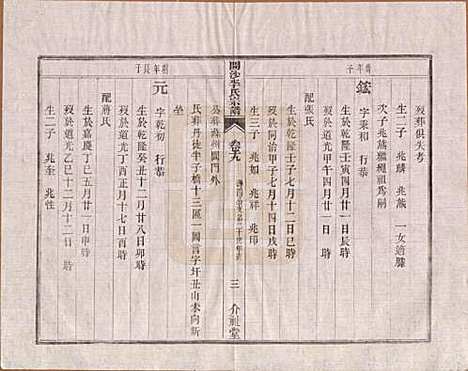 歿葬俱失考
生二子 兆麟 兆熊 一女適
次子兆熊 祖爲嗣
字秉和 行恭
生於乾隆壬寅四月廿一日辰時
歿於道光甲午四月廿一日 時
配張氏
生於乾隆壬子七月十二日巳時
歿於同治甲子七月十四日戌時
生三子 兆如 兆祥 兆印
公葬蘇州閶門外
開沙李氏宗譜
卷九
三 介祉堂
氏葬丹徒半子橋十三區一圖言字圩丑山未向新
坐
元
字乾初 行恭
生於乾隆癸丑十二月廿八日卯時
歿於道光丁酉正月十七日酉時
配蔣氏
生於嘉慶丁巳五月廿一日申時
歿於道光乙巳十二月十二日 時
生二子 兆奎 兆性